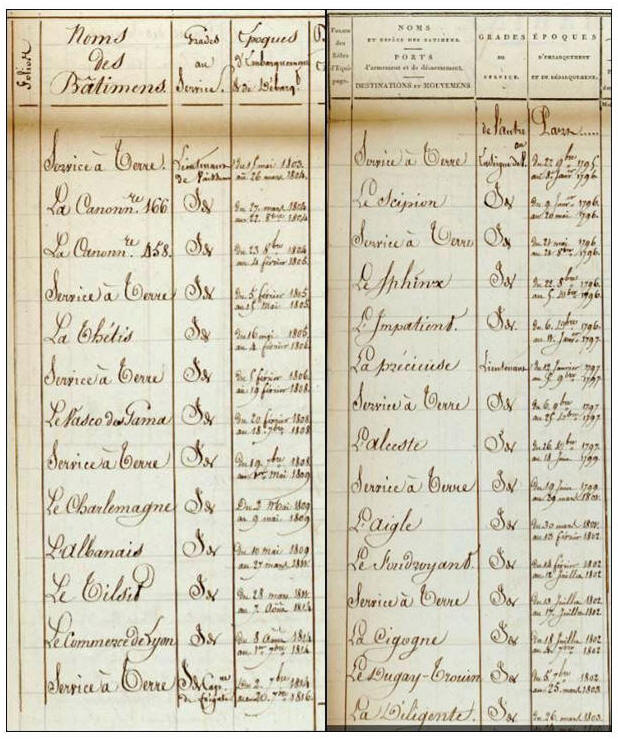 Folios
Noms
des
Bâtimens.
Grades
au
Service.
Époques
d'Embarquement
& de Débarqt.
Service à Terre.
Lieutenant
de Vaisseau
Du 5 mai 1803.
au 26 mars 1804.
La Canonnre. 166
Id
du 27 mars 1804
au 22. 8bre 1804
La Canonnre. 458.
Id
du 23 8bre 1804
au 4 février 1805.
Service à Terre
Id
du 5 février 1805
au 15 Mai 1805
La Thétis
Id
Du 16 mai 1805.
au 4 février 1806.
Service à Terre
Id
Du 5 février 1806.
au 19 février 1808.
Le Vasco de Gama
Id
du 20 février 1808.
au 18. 7bre 1808.
Service à Terre
Id
Du 19. 7bre 1808
au 1er Mai 1809
Le Charlemagne
Id
Du 2 Mai 1809
au 9 mai 1809
L'Albanais
Id
du 10 mai 1809
au 27 mars 1811.
Le Tilsit
Id
du 28 mars 1811.
au 7 Août 1814
Le Commerce de Lyon
Id
du 8 Août 1814
au 1er 7bre 1814
Service à Terre
Id & Capne
de frégate
Du 2. 7bre 1814
au 20. 7bre 1816.
Folios
des
Rôles
d'Équi-
page.
NOMS
ET ESPÈCE DES BATIMENS.
PORTS
d'armement et de désarmement.
DESTINATIONS ET MOUVEMENS
GRADES
OU
SERVICE.
ÉPOQUES
D'EMBARQUEMENT
ET DE DÉBARQUEMENT.
de l'autre
Part
Service à Terre
du 22 9bre 1795.
au 8 Janver 1796.
Le Scipion
Id
du 9 Janver 1796.
au 20 mai 1796.
Service à Terre
Id
du 21 mai 1796.
au 21 8bre 1796.
Le Sphinx
Id
du 22. 8bre 1796.
au 5. 10bre 1796.
L'Impatient.
Id
du 6. 10bre 1796.
au 11. Janver 1797.
La précieuse
Lieutenant
du 12 Janvier 1797
au 5 9bre 1797
Service à Terre
Id
du 6 9bre 1797
au 25 10bre 1797.
L'alceste
Id
du 26 10bre 1797.
au 18 Juin 1799.
Service à Terre
Id
du 19 Juin 1799
au 29 mars 1801.
L'aigle
Id
du 30 mars 1801.
au 13 février 1802.
Le Foudroyant.
Id
du 14 février 1802
au 12 Juillet 1802
Service à Terre
Id
du 13 Juillet 1802
au 17 Juillet 1802.
La Cigogne
Id
du 18 Juillet 1802
au 4. 7bre 1802
Le Dugay-Trouin
Id
du 5 7bre 1802
au 25. mars 1803.
La Diligente.
Id
du 26. mars 1803.